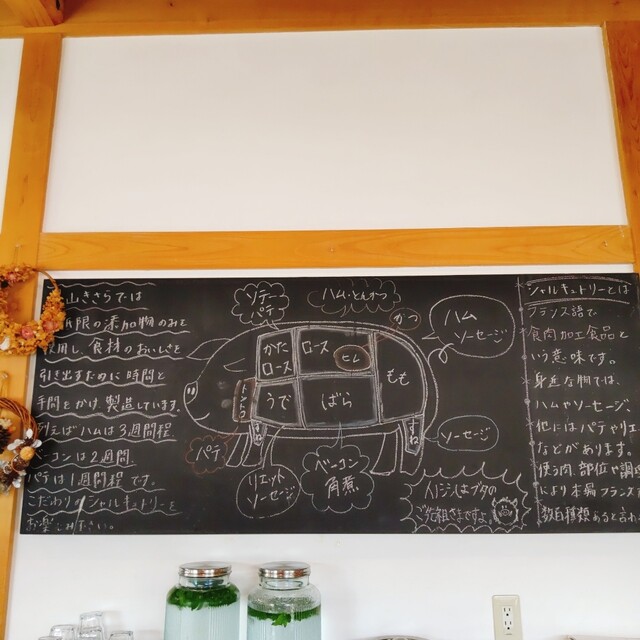 山きさらでは
限の添加物のみを
用し、食材のおいしさを
引き出すために時間と
手間をかけ、製造しています。
例えばハムは3週間程
コンは2週間
パテは1週間程です。
こだわりのシャルキュトリーを
お楽しみ下さい。
ソテー
パテ
ハム・とんかつ
かつ
ハム
ソーセージ
かた
ロース
ロース
ヒレ
もも
うで
ばら
すね
すね
パテ
リエット
ソーセージ
ベーコン
角煮
ソーセージ
イノシシはブタの
ご先祖さまですよ。
シャルキュトリーとは
フランス語で
食肉加工食品と
いう意味です。
身近な物では、
ハムやソーセージ、
他にはパテやリエ
などがあります。
使う肉、部位や調
により本場フランス
数百種類あると言わ